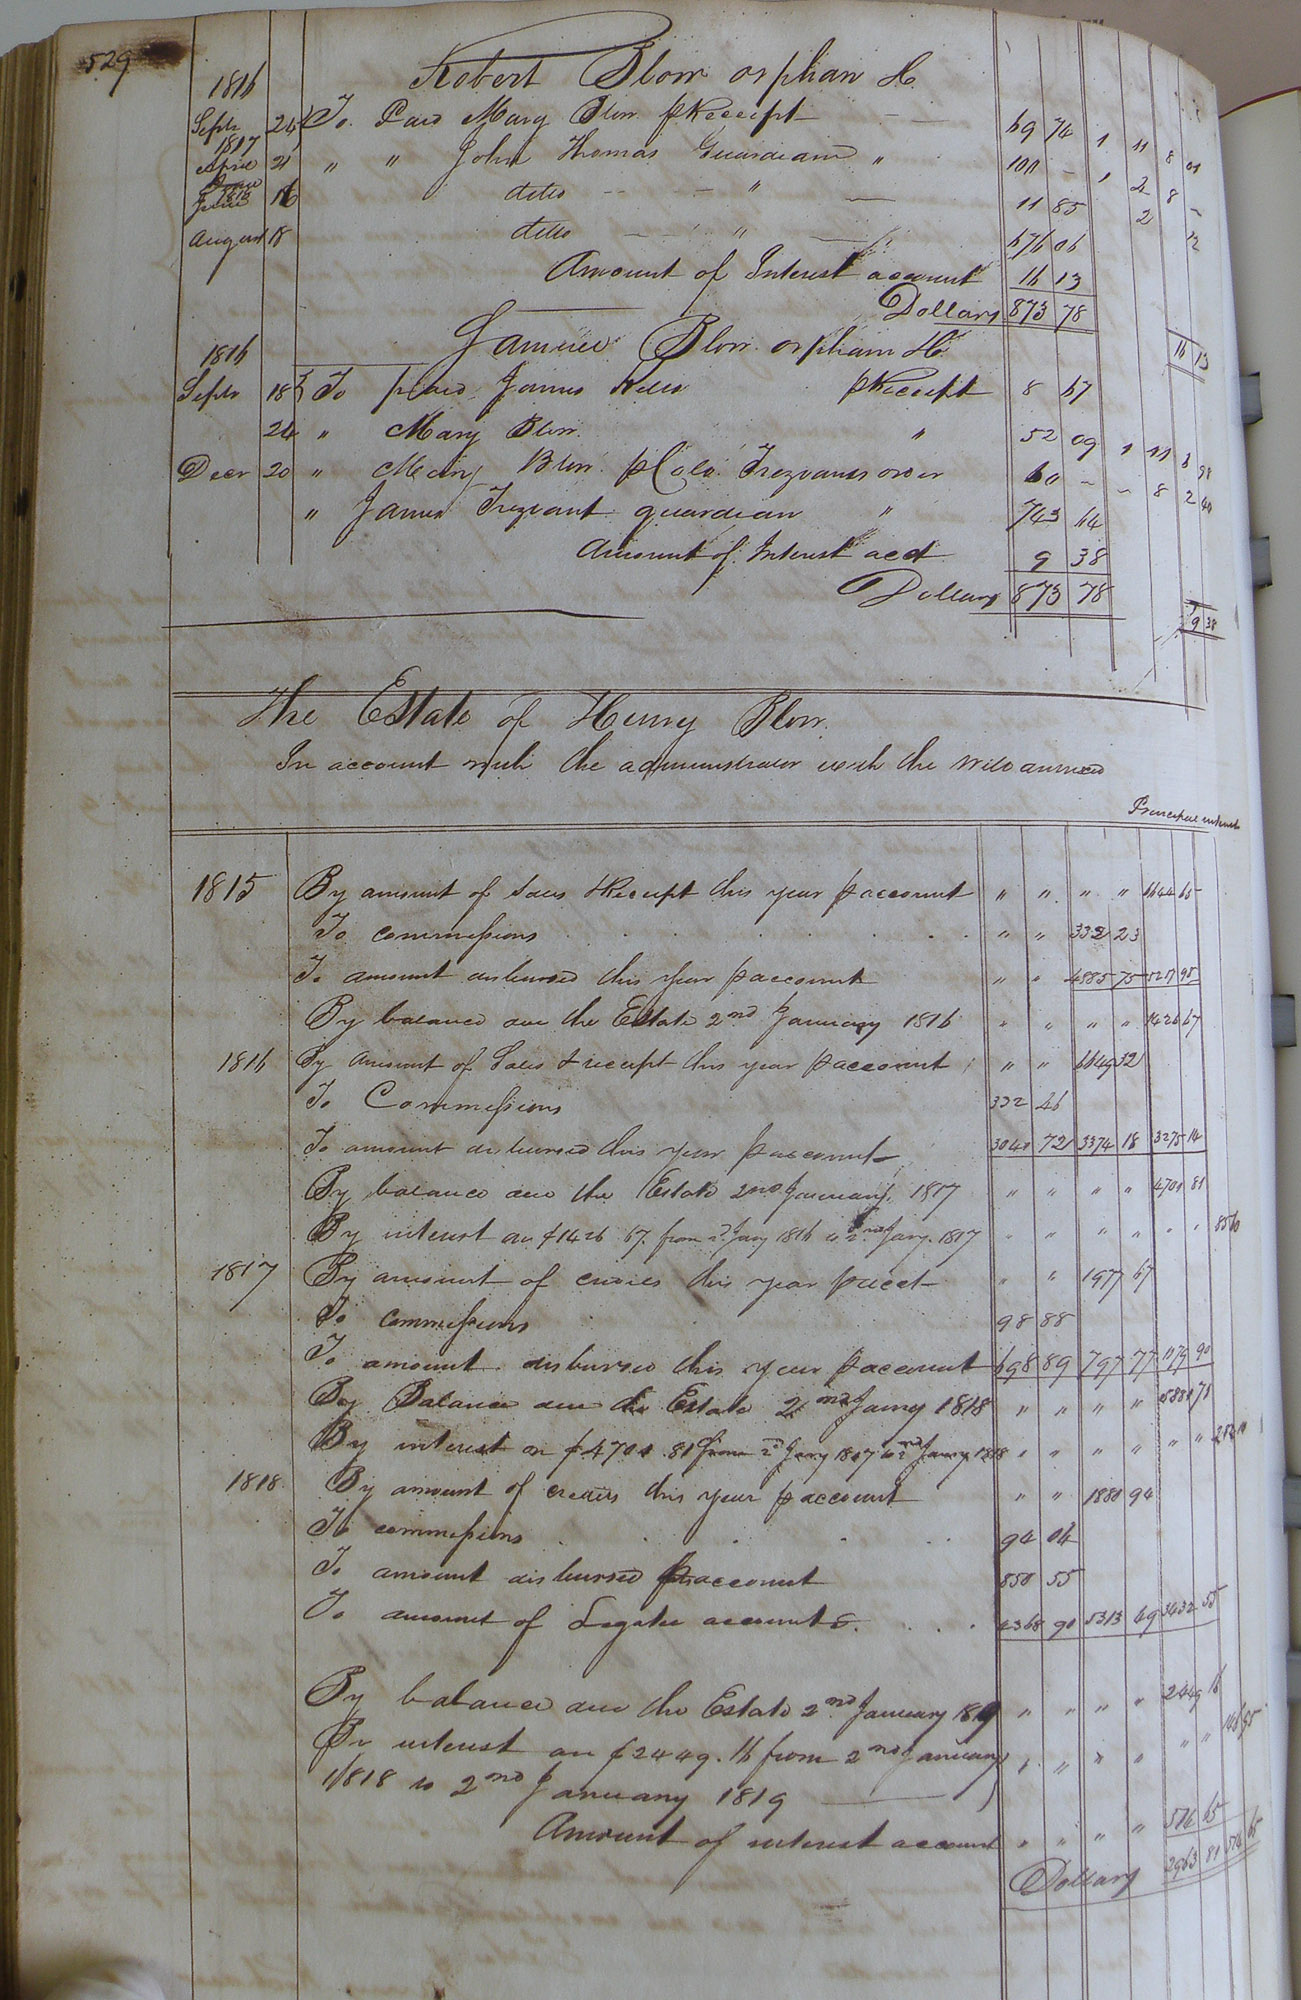 529
Robert Blow orphan &c
1816
Septr 24 To Paid Mary Blow p Receipt 69 74 1 11 8 01
1817
April 21 " " John Thomas Guardian " 100 - 1 2 8 -
1818
June 16 ditto " 11 85 2 12
August 18 ditto " 676 06
Amount of Interest account 16 13
Dollars 873 78
16 13
Blow orphan &c
1816
Septr 18 To paid James p Receipt 8 67
24 " Mary Blow " 52 09 1 11 6 98
Decr 20 " Blow p Colo. Trezvants order 60 - - 8 2 40
" James Trezvant guardian " 743 64
Amount of Interest acct 9 38
Dollars 873 78
9 38
The Estate of Henry Blow
In account with the administrator with the will annexed
Principal interest
1815 By amount of Sales & Receipt this year p account " " " " 6644 65
To commissions " " 332 23
To amount disbursed this year p account " " 4885 75 5217 98
By balance due the Estate 2nd January 1816 " " " " 1426 67
1816 By amount of Sales & receipt this year p account " " 6649 32
To Commissions 332 46
To amount disbursed this year p account 3040 72 3374 18 3275 14
By balance due the Estate 2nd January 1817 " " " " 4701 81
By interest on $1426 67 from 2d Jany 1816 to 2nd Jany 1817 " " " " " " 85 60
1817 By amount of credits this year p acct " " 1977 67
To commissions 98 88
To amount disbursed this year p account 698 89 797 77 1179 90
By Balance due the Estate 2nd Jany 1818 " " " " 5881 71
By interest on $4701 81 from 2d Jany 1817 to 2nd Jany 1818 " " " " " " 282 10
1818 By amount of credits this year p account " " 1880 94
To commissions 94 04
To amount disbursed p account 850 55
To amount of Legatee accounts 4368 90 5313 49 3432 55
By balance due the Estate 2nd January 1819 " " " " 2449 16
By interest on $2449.16 from 2nd January
1818 to 2nd January 1819 " " " " " " 146 95
Amount of interest account " " " " 514 65
Dollars 2963 81 514 65